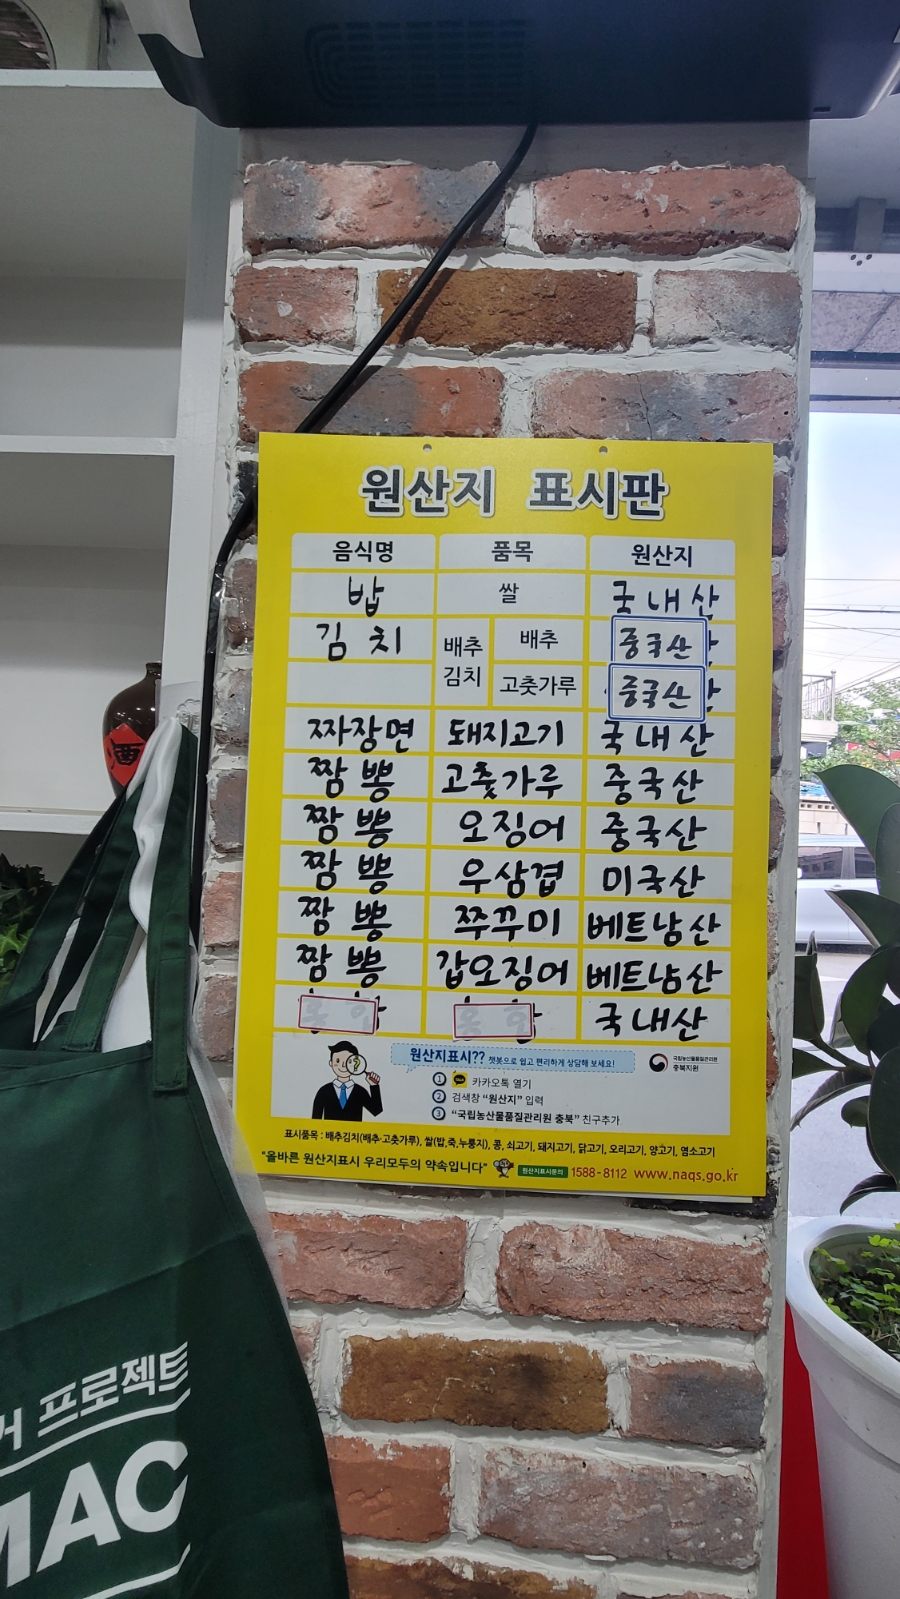 원산지 표시판
음식명 품목 원산지
밥 쌀 국내산
김치 배추김치 배추 중국산
고춧가루 중국산
짜장면 돼지고기 국내산
짬뽕 고춧가루 중국산
짬뽕 오징어 중국산
짬뽕 우삼겹 미국산
짬뽕 쭈꾸미 베트남산
짬뽕 갑오징어 베트남산
국내산
원산지표시?? 챗봇으로 쉽고 편리하게 상담해 보세요!
국립농산물품질관리원
충북지원
1 카카오톡 열기
2 검색창 "원산지" 입력
3 "국립농산물품질관리원 충북" 친구추가
표시품목 : 배추김치(배추·고춧가루), 쌀(밥,죽,누룽지), 콩, 쇠고기, 돼지고기, 닭고기, 오리고기, 양고기, 염소고기
"올바른 원산지표시 우리모두의 약속입니다" 원산지표시문의 1588-8112 www.naqs.go.kr
酒
거 프로젝트
MAC